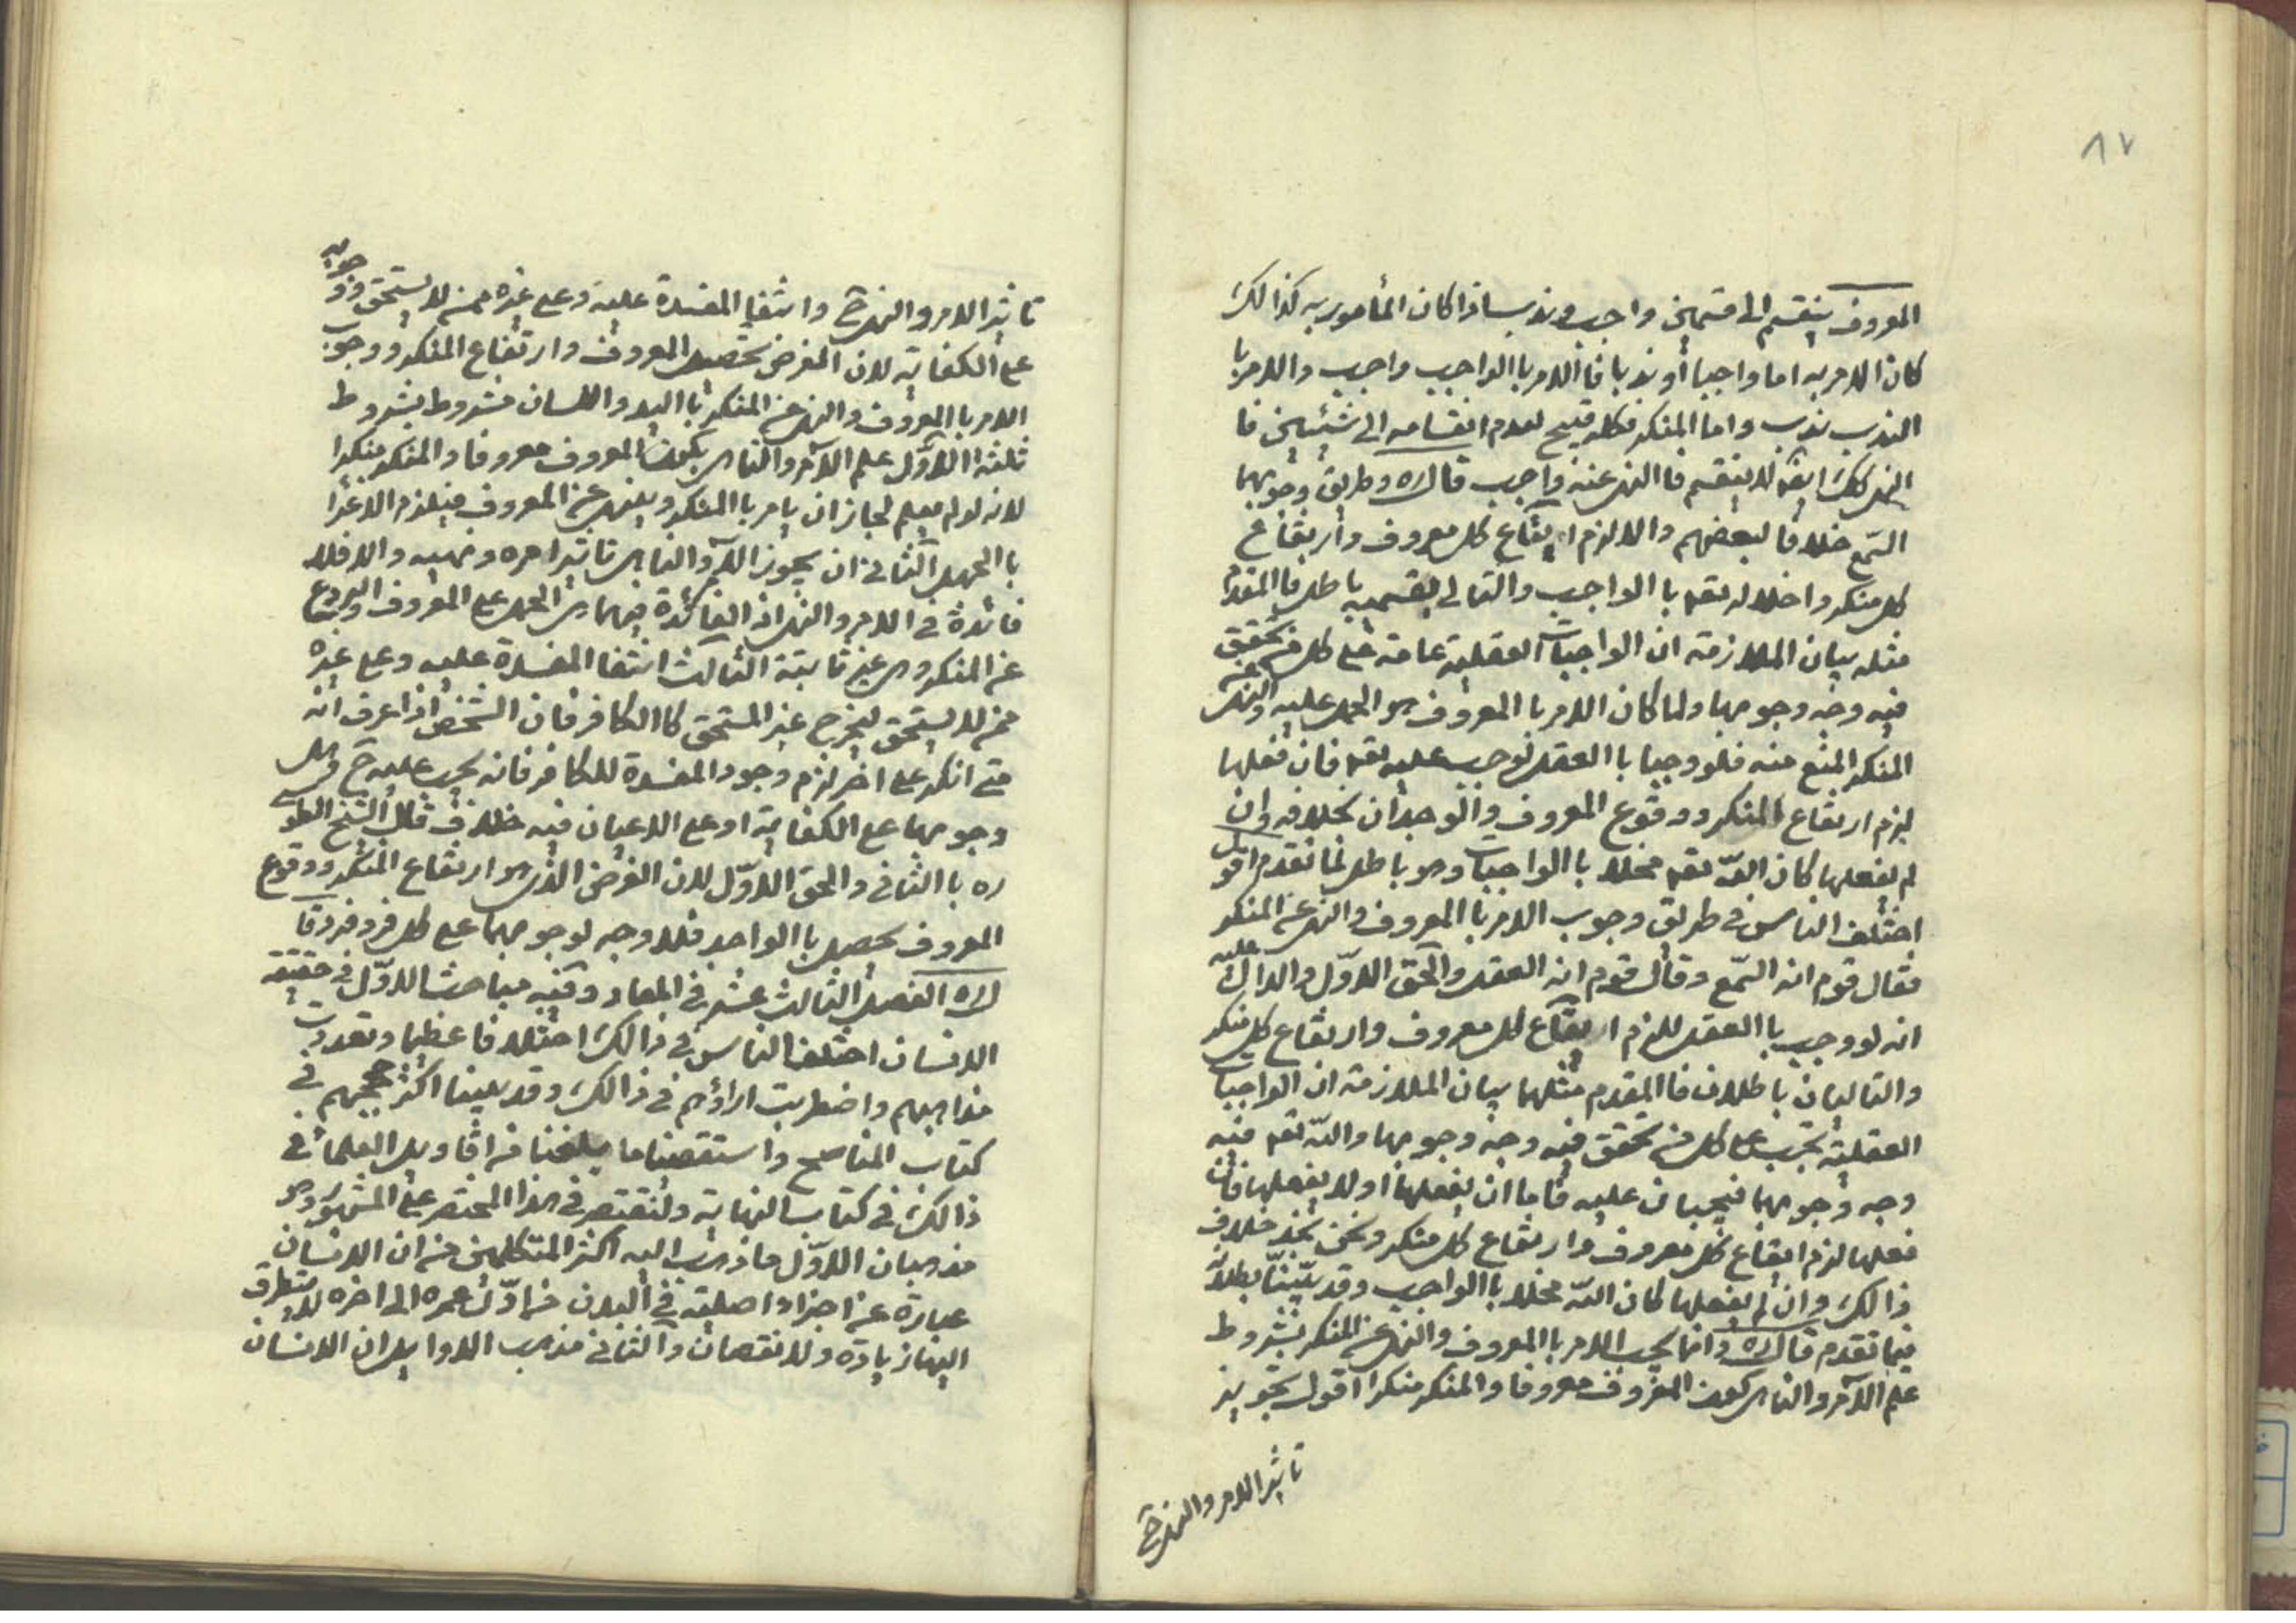 ٨٧
المعروف ينقسم الى قسمين واجب وندب اذا كان المأمور به كذالك
كان الامر به اما واجبا أو ندبا فا الامر با الواجب واجب والامر با
الندب ندب واما المنكر فكله قبيح لعدم انقسامه الى شيئين فا
النهى كك ايضا لا ينقسم فا النهى عنه واجب قال ره وطريق وجوبهما
السّمع خلافا لبعضهم والا لزم ايقاع كل معروف وارتفاع
كل منكر واخلاله تعه با الواجب والتالى بقسميه باطل فا المقدم
مثله بيان الملازمة ان الواجبات العقلية عامة على كل من تحقق
فيه وجه وجوبها ولما كان الامر با المعروف هو الحمل عليه والنهى عن
المنكر المنع منه فلو وجبا با العقل لوجب عليه تعه فان فعلها
لزم ارتفاع المنكر ووقوع المعروف والوجدان بخلافه وان
لم يفعلها كان الله تعه مخلا با الواجبات وهو باطل لما تقدم اقول
اختلف الناس فى طريق وجوب الامر با المعروف والنهى عن المنكر
فقال قوم انه السّمع وقال قوم انه العقل والحق الاوّل والدال عليه
انه لو وجب با العقل للزم ايقاع كل معروف وارتفاع كل منكر
والتاليان باطلان فا المقدم مثلهما بيان الملازمة ان الواجبات
العقلية تجب على كل من تحقق فيه وجه وجوبها والله تعه فيه
وجه وجوبهما فيجبان عليه فاما ان يفعلها او لا يفعلها فان
فعلها لزم ايقاع كل معروف وارتفاع كل منكر ونحن نجد خلاف
ذالك وان لم يفعلها كان الله مخلا با الواجب وقد بيّنا بطلانه
فيما تقدم قال ره وانما يجب الامر با المعروف والنهى عن المنكر بشروط
علم الآمر والناهى كون المعروف معروفا والمنكر منكرا اقول تجويز
تاثير الامر والنهى ح
تاثير الامر والنهى ح وانتفا المفسدة عليه وعلى غيره ممن لا يستحق ووجوبه
على الكفاية لان الغرض تحصيل المعروف وارتفاع المنكر ووجوب
الامر با المعروف والنهى عن المنكر با اليد واللسان مشروط بشروط
ثلثة الاوّل علم الآمر والناهى بكون المعروف معروفا والمنكر منكرا
لانه لو لم يعلم لجاز ان يامر با المنكر وينهى عن المعروف فيلزم الاغرا
با الجهل الثانى ان يجوز الآمر والناهى تاثير امره ونهيه والا فلا
فائدة فى الامر والنهى اذ الفائدة فيهما هى الحمل على المعروف والردع
عن المنكر وهى غير ثابتة الثالث انتفا المفسدة عليه وعلى غيره
ممن لا يستحق ليخرج غير المستحق كا الكافر فان الشخص اذا عرف انه
متى انكر على اخر لزم وجود المفسدة للكافر فانه يجب عليه ح وهل
وجوبهما على الكفاية او على الاعيان فيه خلاف قال الشيخ الطوسى
ره با الثانى والحق الاوّل لان الغرض الذى هو ارتفاع المنكر ووقوع
المعروف يحصل با الواحد فلا وجه لوجوبهما على كل فرد فرد قا
ل ره الفصل الثالث عشر فى المعاد وفيه مباحث الاوّل فى حقيقة
الانسان اختلف الناس فى ذالك اختلافا عظيما وتعددت
مذاهبهم واضطربت اراؤهم فى ذالك وقد بينا اكثر حججهم فى
كتاب المناهج واستقصينا ما بلغنا من اقاويل العلمأ فى
ذالك فى كتاب النهاية ولنقتصر فى هذا المختصر على المشهور وهو
مذهبان الاوّل ما ذهب اليه اكثر المتكلمين من ان الانسان
عبارة عن اجزاء اصلية فى البدن من اوّل عمره الى اخره لا يتطرق
اليها زيادة ولا نقصان والثانى مذهب الاوايل ان الانسان